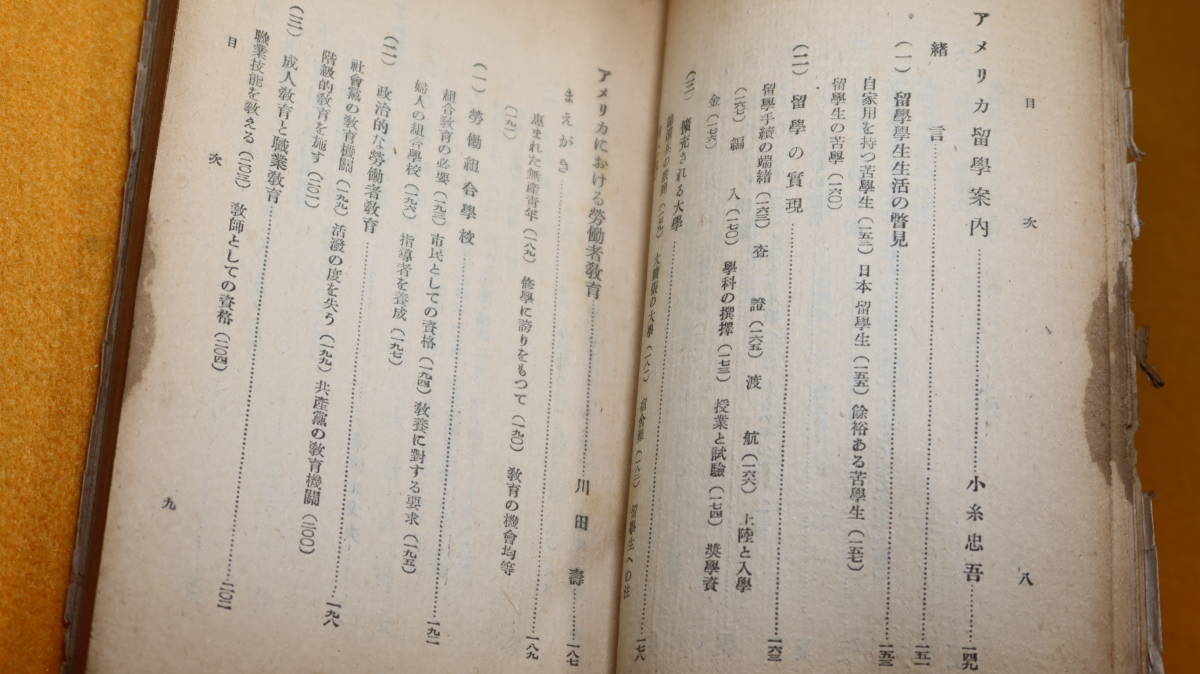 目次 八
アメリカ留學案内……小糸忠吾……一四九
緒言……一五一
(一) 留學學生生活の瞥見……一五三
自家用を持つ苦學生(一五三) 日本留學生(一五五) 餘裕ある苦學生(一五七)
留學生の苦學(一六〇)
(二) 留學の實現……一六三
留學手続の端緒(一六三) 査證(一六五) 渡航(一六六) 上陸と入學
(一六七) 編入(一七〇) 學科の撰擇(一七三) 授業と試驗(一七四) 奬學資
金(一七六)
(三) 擴充される大學……一七八
大學(一八一) 留學生への注
アメリカにおける勞働者敎育……川田壽……一八七
まえがき……一八九
惠まれた無產靑年(一八九) 修學に誇りをもつて(一九〇) 敎育の機會均等
(一九一)
(一) 勞働組合學校……一九二
組合敎育の必要(一九三) 市民としての資格(一九四) 敎養に對する要求(一九五)
婦人の組合學校(一九六) 指導者を養成(一九七)
(二) 政治的な勞働者敎育……一九八
社會黨の敎育機關(一九九) 活潑の度を失う(一九九) 共產黨の敎育機關(二〇〇)
階級的敎育を施す(二〇一)
(三) 成人敎育と職業敎育……二〇二
職業技能を敎える(二〇三) 敎師としての資格(二〇四)
目次 九